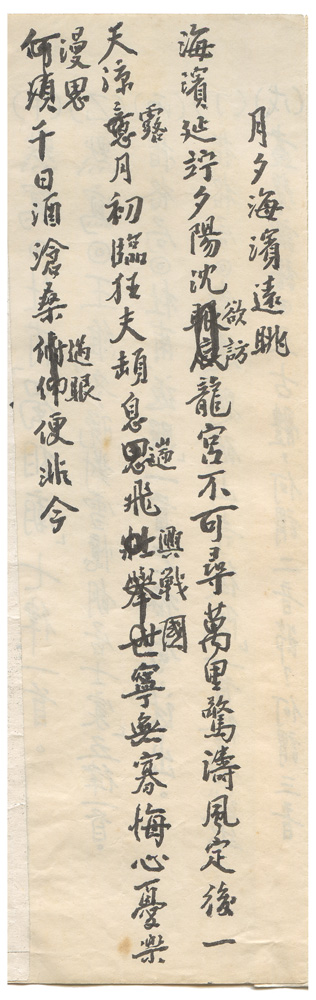 月夕海濱遠眺
海濱延竚夕陽沈欲訪龍宮不可尋萬里驚濤風定後一
天涼露月初臨狂夫頓息遄飛興戰國寧無寡悔心憂樂
漫思千日酒滄桑過眼便非今